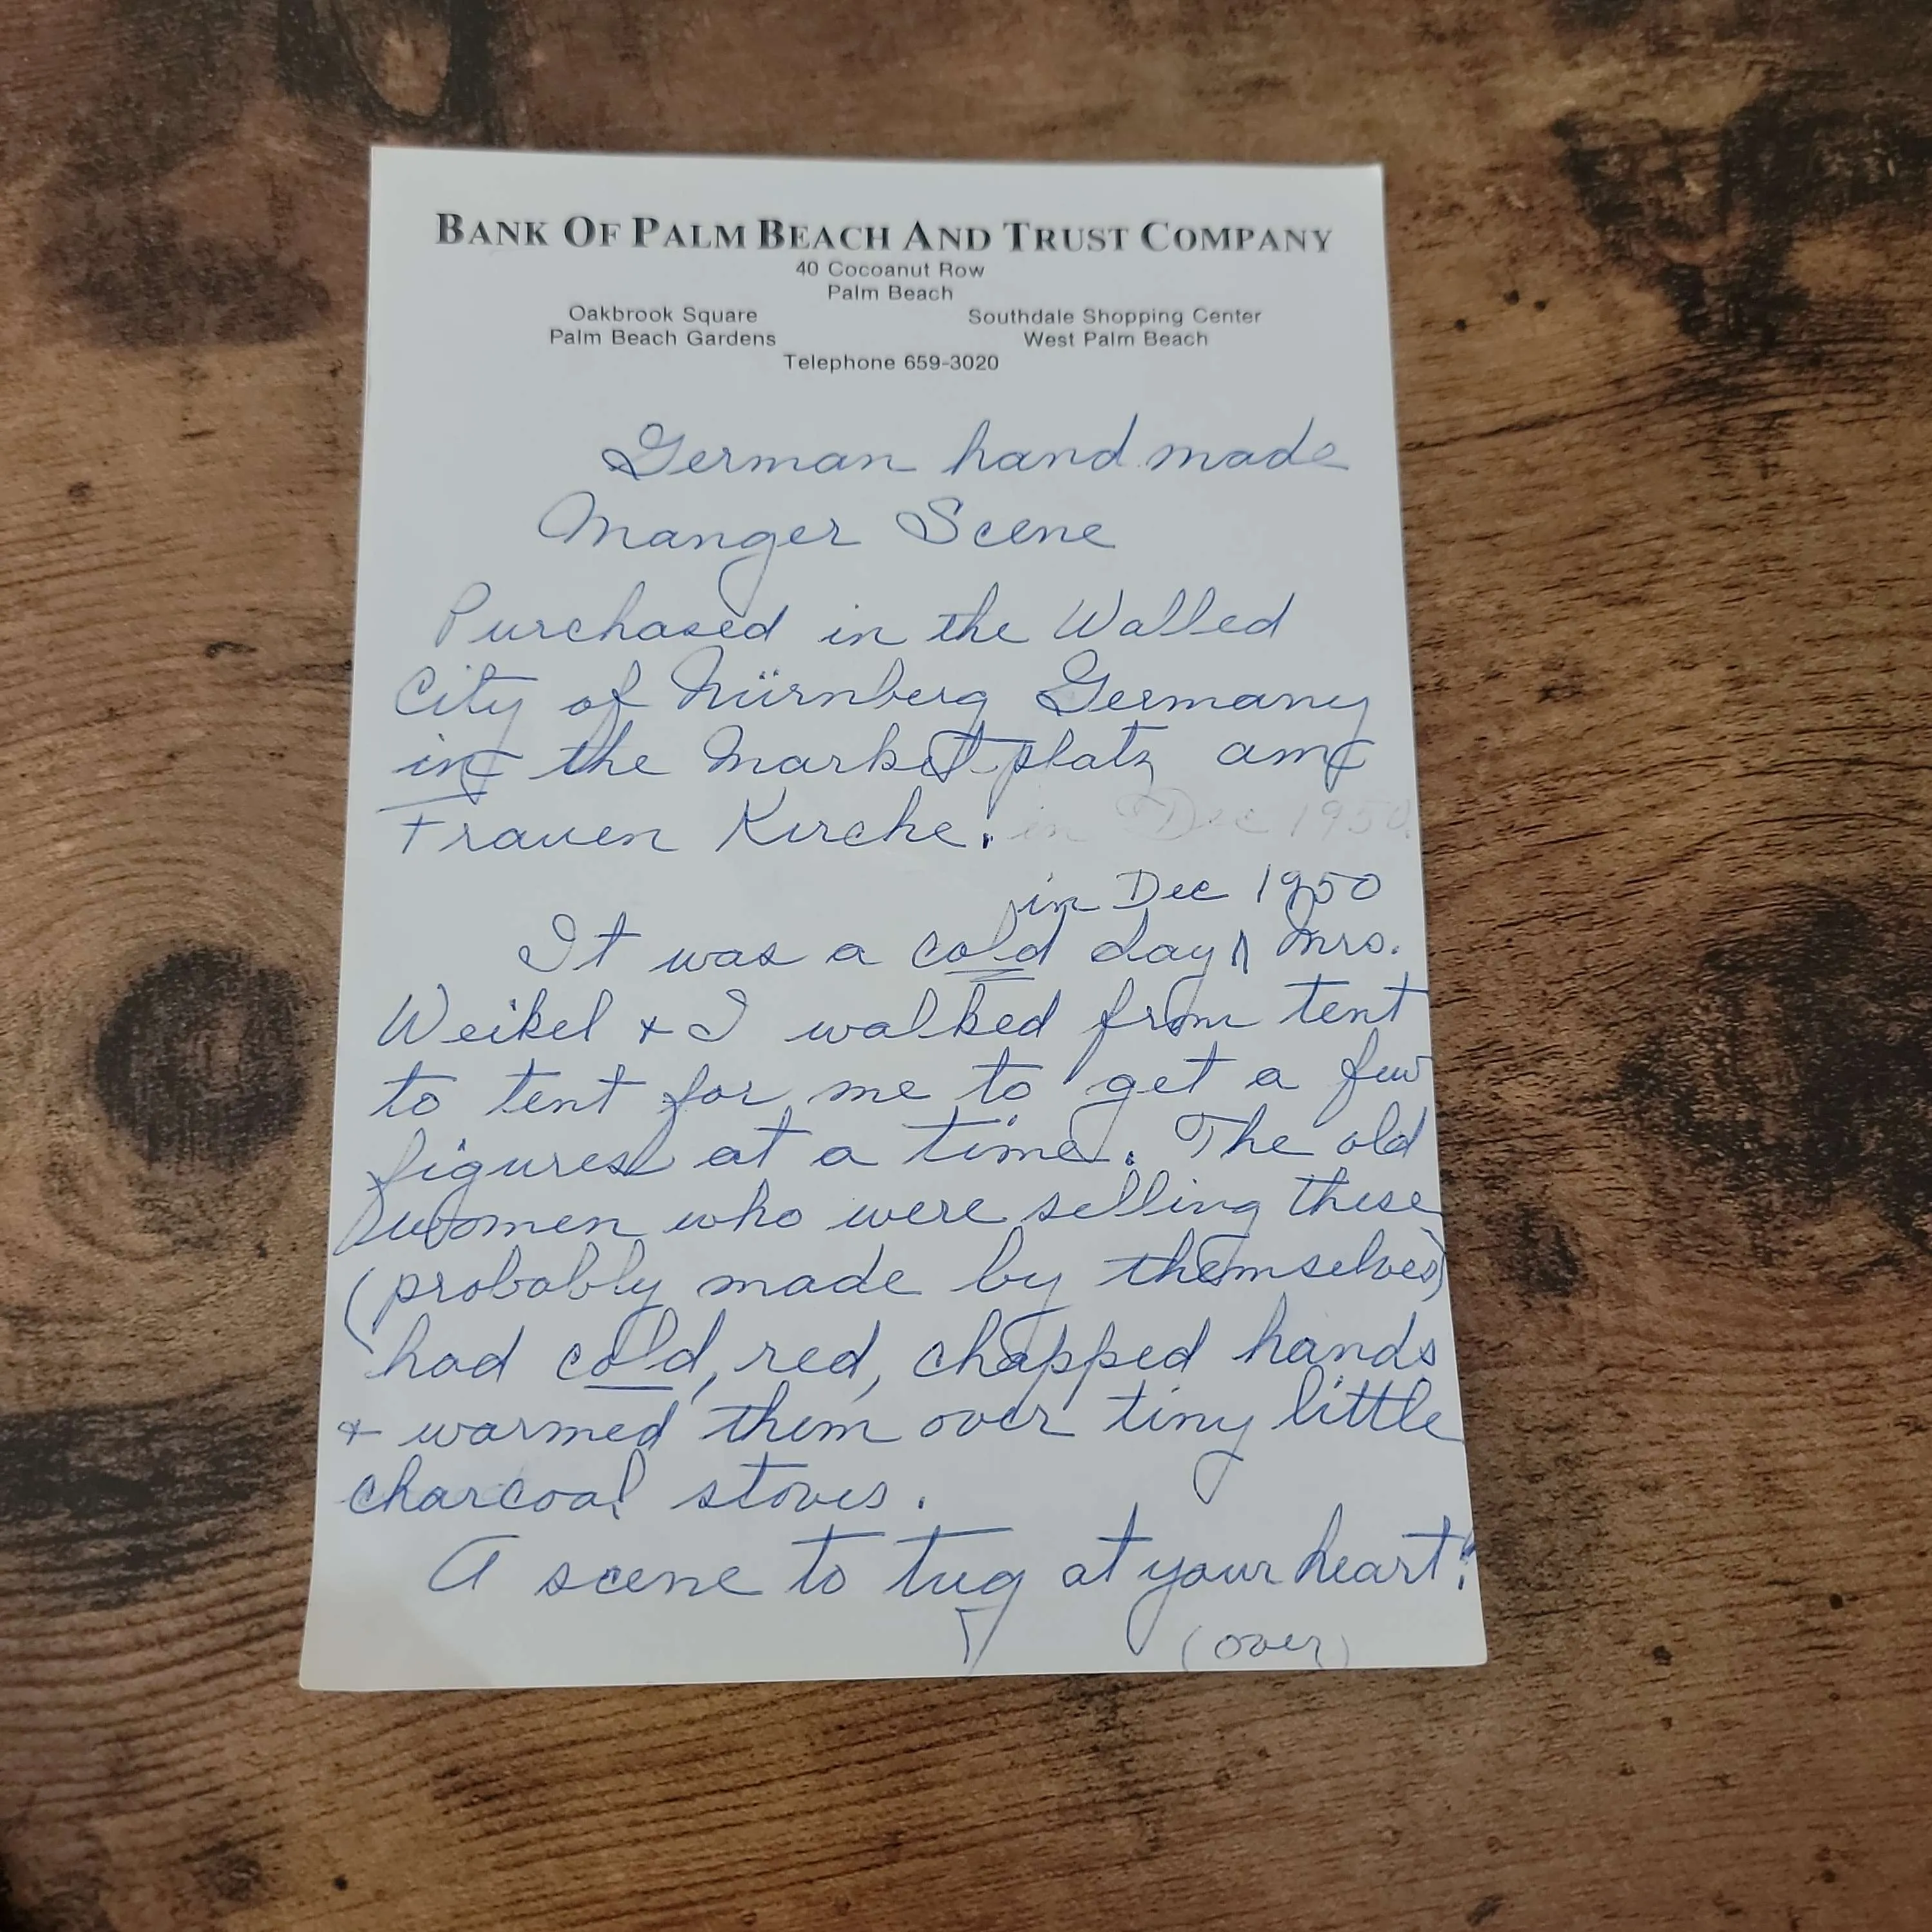 BANK OF PALM BEACH AND TRUST COMPANY
40 Cocoanut Row
Palm Beach
Oakbrook Square Southdale Shopping Center
Palm Beach Gardens West Palm Beach
Telephone 659-3020
German hand made
Manger Scene
Purchased in the Walled
City of Nürnberg Germany
in the Market platz am
Frauen Kirche. in Dec 1950.
in Dec 1950
It was a cold day Mrs.
Weikel + I walked from tent
to tent for me to get a few
figures at a time. The old
women who were selling these
(probably made by themselves)
had cold, red, chapped hands
+ warmed them over tiny little
charcoal stoves.
A scene to tug at your heart!
(over)